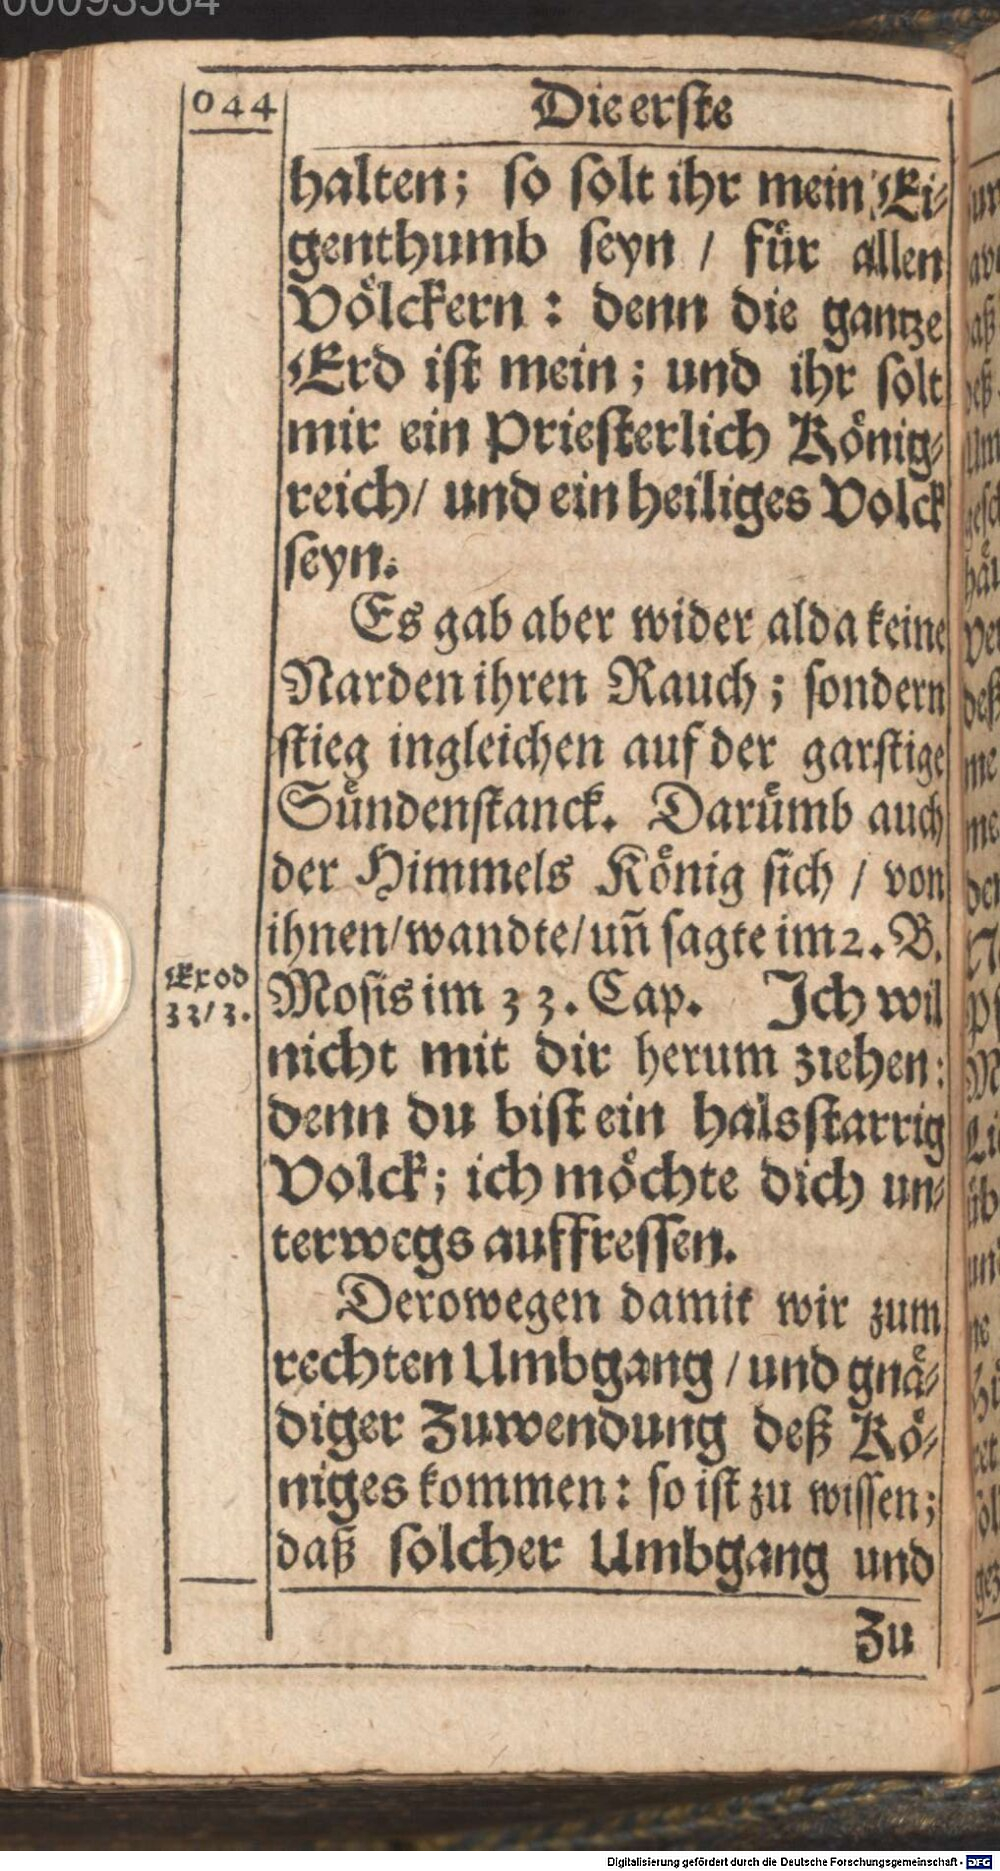 044
Die erste
halten; so solt ihr mein Ei-
genthumb seyn / fuͤr allen
Voͤlckern: denn die gantze
Erd ist mein; und ihr solt
mir ein Priesterlich Koͤnig-
reich/ und ein heiliges Volck
seyn.
Es gab aber wider alda keine
Narden ihren Rauch; sondern
stieg ingleichen auf der garstige
Suͤndenstanck. Daruͤmb auch
der Himmels Koͤnig sich / von
ihnen/wandte/uñ sagte im 2. B.
Exod
33/3.
Mosis im 33. Cap. Ich wil
nicht mit dir herum ziehen:
denn du bist ein halsstarrig
Volck; ich moͤchte dich un-
terwegs auffressen.
Derowegen damit wir zum
rechten Umbgang / und gnaͤ-
diger Zuwendung deß Koͤ-
niges kommen: so ist zu wissen;
daß solcher Umbgang und
Zu
Digitalisierung gefördert durch die Deutsche Forschungsgemeinschaft - DFG